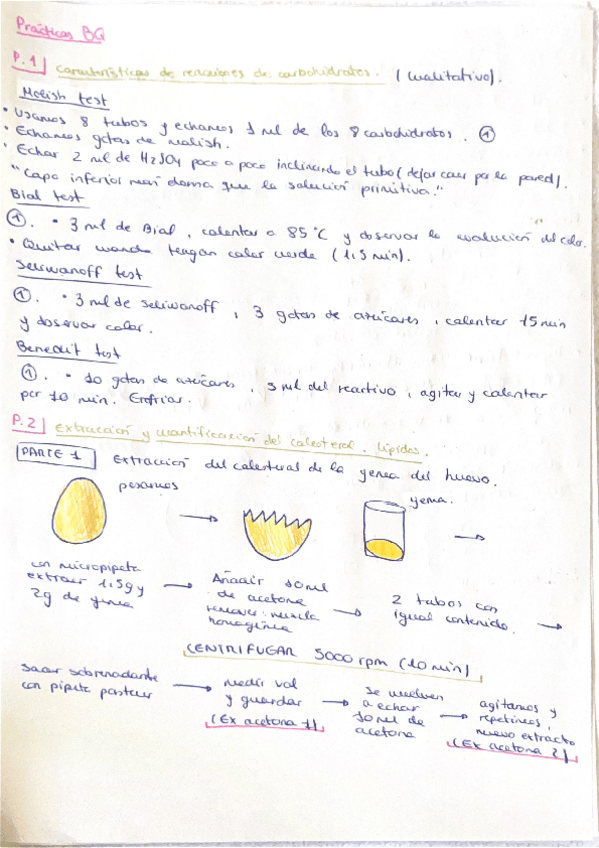 Prácticas BQ
P.1 Características de reacciones de carbohidratos. (cualitativo).
Molish test
• Usamos 8 tubos y echamos 1 ml de los 8 carbohidratos. ①
• Echamos gotas de molish.
• Echar 2 ml de H2SO4 poco a poco inclinando el tubo (dejar caer por la pared).
"Capa inferior más densa que la solución primitiva."
Bial test
①. • 3 ml de Bial, calentar a 85°C y observar la evolución del color.
• Quitar cuando tengan color verde (1,5 min).
Seliwanoff test
①. • 3 ml de seliwanoff, 3 gotas de azúcares, calentar 15 min
y observar color.
Benedict test
①. • 10 gotas de azúcares, 5 ml del reactivo, agitar y calentar
por 10 min. Enfriar.
P.2 Extracción y cuantificación del colesterol. Lípidos.
PARTE 1 Extracción del colesterol de la yema del huevo.
pesamos
yema.
con micropipeta
extraer 1,5g y
2g de yema
→ Añadir 10 ml
de acetona
remover: mezcla
homogénea
→ 2 tubos con
igual contenido. →
CENTRIFUGAR 5000 rpm (10 min)
Sacar sobrenadante
con pipeta pasteur
→ medir vol
y guardar
(Ex acetona 1)
→ se vuelven
a echar
10 ml de
acetona
→ agitamos y
repetimos,
nuevo extracto
(Ex acetona 2)